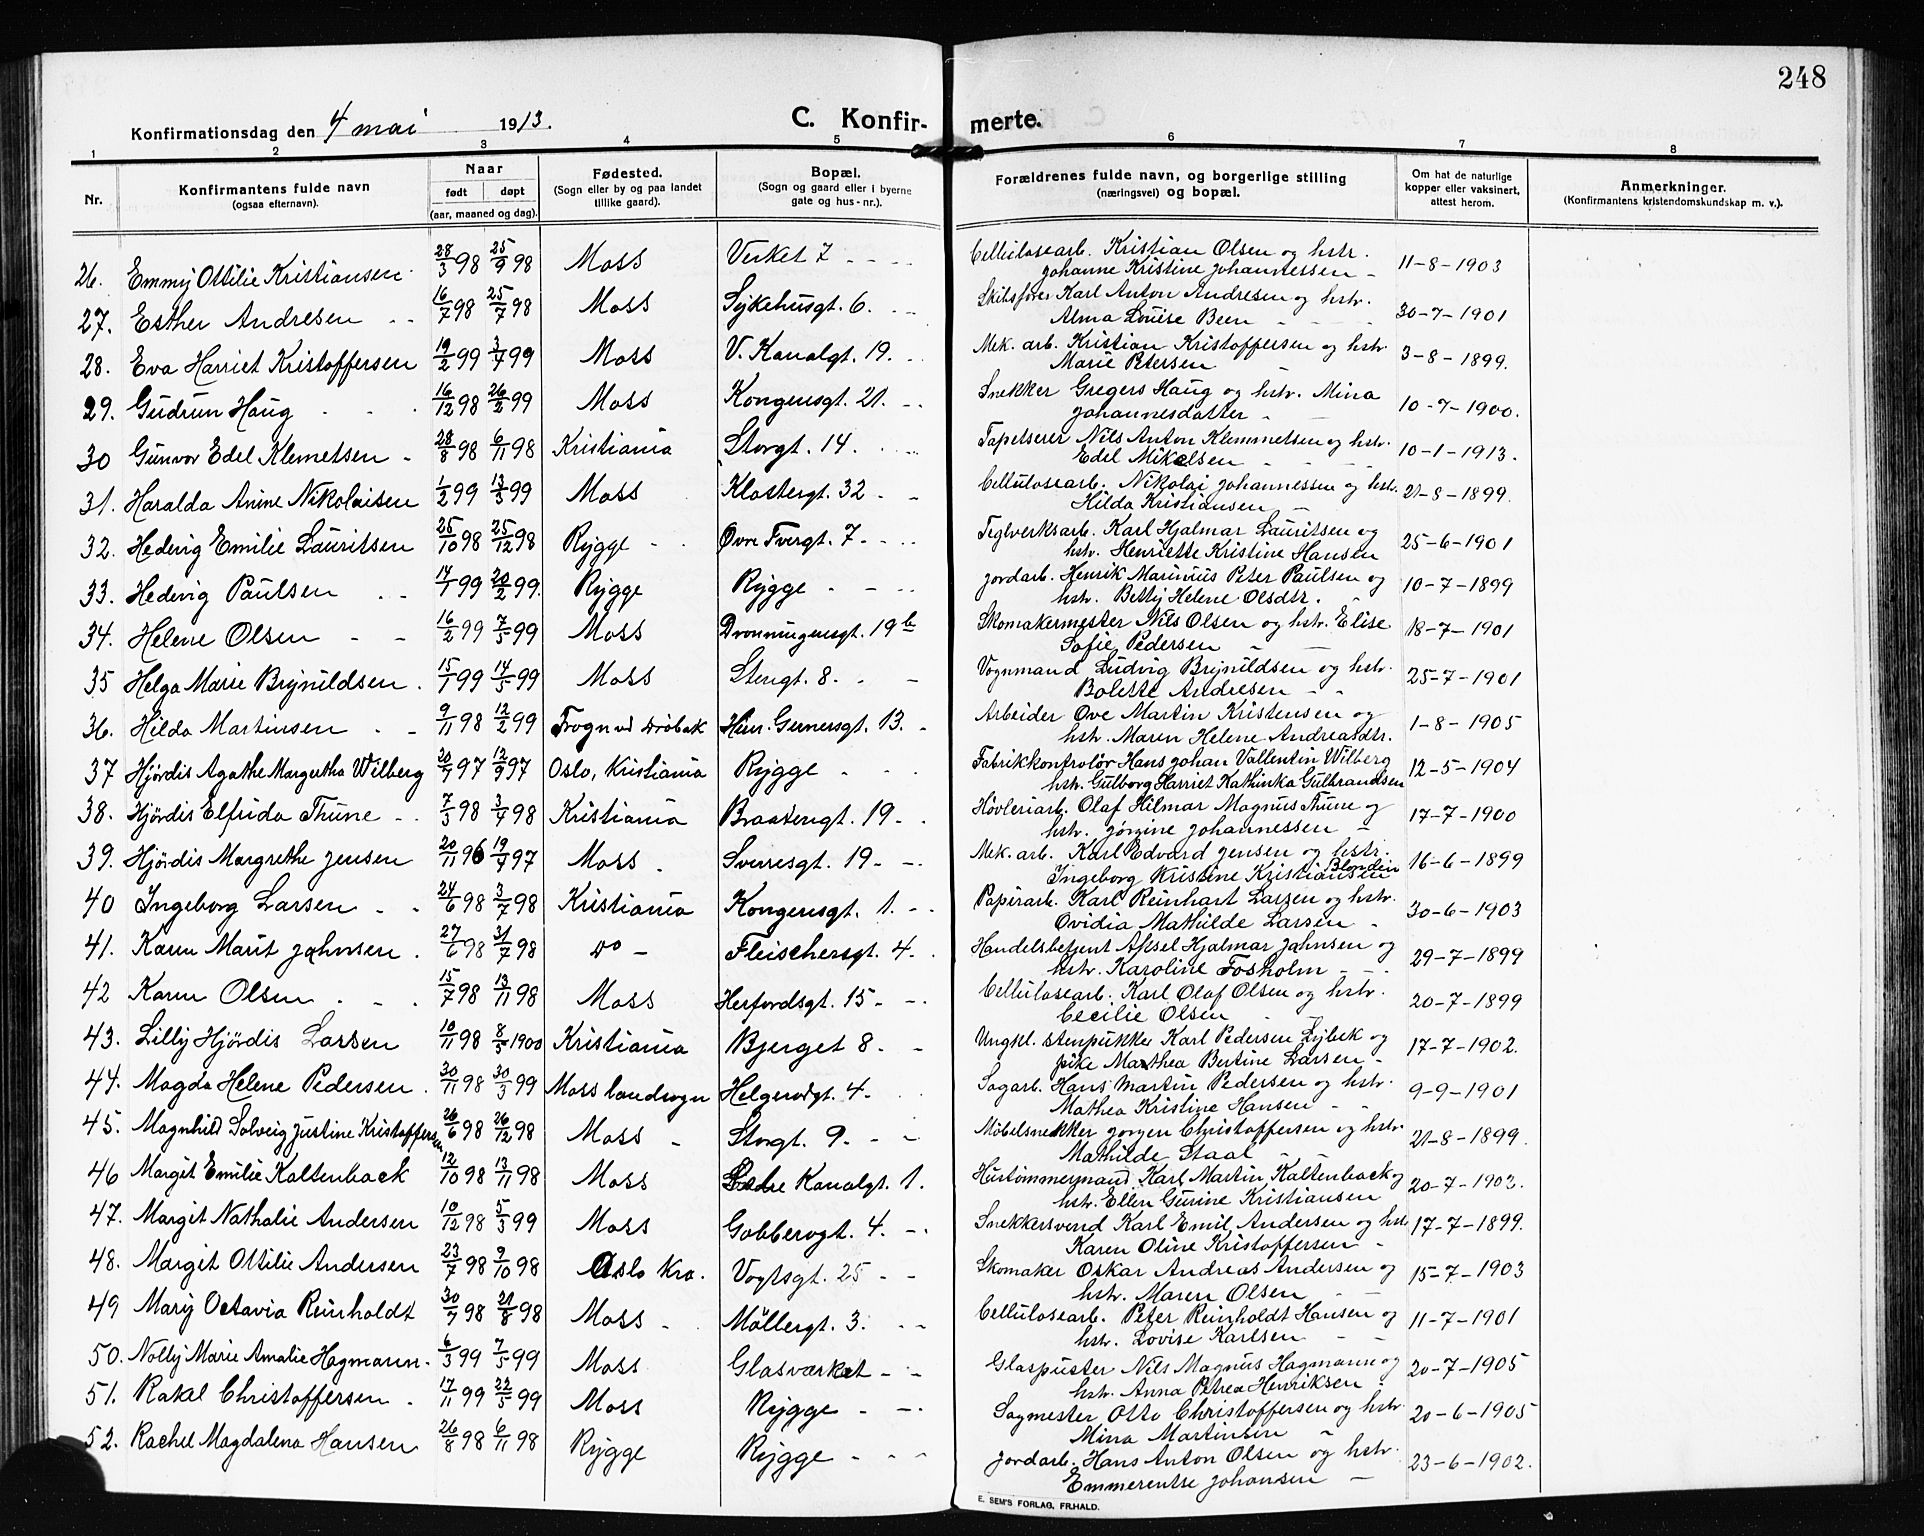 248
Konfirmationsdag den 4 mai 1913.
C. Konfir- merte.
1 2 3 4 5 6 7 8
Nr. Konfirmantens fulde navn (ogsaa efternavn). Naar født døpt (aar, maaned og dag). Fødested. (Sogn eller by og paa landet tillike gaard). Bopæl. (Sogn og gaard eller i byerne gate og hus-nr.). Forældrenes fulde navn, og borgerlige stilling (næringsvei) og bopæl. Om hat de naturlige kopper eller vaksinert, attest herom. Anmerkninger. (Konfirmantens kristendomskundskap m. v.).
26. Emmy Ottilie Kristiansen 28/3 98 25/9 98 Moss Verket 7 Cellulosearb. Kristian Olsen og hstr. 11-8-1903
Johanne Kristine Johannessen
27. Esther Andresen 16/7 98 25/7 98 Moss Sykehusgt. 6. Skibsfører Karl Anton Andresen og hstr. 30-7-1901
Alma Louise Been
28. Eva Harriet Kristoffersen 19/2 99 3/4 99 Moss V. Kanalgt. 19. Mek. arb. Kristian Kristoffersen og hstr 3-8-1899.
Marie Petersen
29. Gudrun Haug 16/12 98 26/2 99 Moss Kongensgt. 21. Snekker Gregers Haug og hstr. Mina 10-7-1900.
Johannesdatter
30 Gunvor Edel Klemetsen 28/8 98 6/11 98 Kristiania Storgt. 14. Tapetserer Nils Anton Klemmetsen og hstr. 10-1-1913.
Edel Mikelsen
31. Haralda Anine Nikolaisen 1/2 99 13/3 99 Moss Klostergt. 32 Cellulosearb. Nikolai Johannessen og hstr. 21-8-1899.
Hilda Kristiansen
32. Hedvig Emilie Lauritsen 25/10 98 25/12 98 Rygge Øvre Tvergt. 7 Teglverksarb. Karl Hjalmar Lauritsen og 25-6-1901
hstr. Henriette Kristine Hansen
33. Hedvig Paulsen 14/1 99 20/2 99. Rygge Rygge Jordarb. Henrik Marinius Peter Paulsen og 10-7-1899
hstr. Betty Helene Olsdtr.
34. Helene Olsen 16/2 99 7/5 99 Moss Dronningensgt. 19 b Skomakermester Nils Olsen og hstr. Elise 18-7-1901
Sofie Pedersen
35 Helga Marie Brynildsen 15/1 99 14/5 99 Moss Stengt. 8. Vognmand Ludvig Brynildsen og hstr. 25-7-1901
Bolette Andresen
36. Hilda Martinsen 9/11 98 12/2 99 Frogn ved Drøbak Hen. Gernersgt. 13. Arbeider Ove Martin Kristensen og 1-8-1905
hstr. Maren Helene Andreasdtr.
37 Hjördis Agathe Margretha Wilberg 20/7 97 12/9 97 Oslo, Kristiania Rygge Fabrikkontrolör Hans Johan Vallentin Wilberg 12-5-1904
hstr. Gulborg Harriet Kathinka Gulbrandsen
38. Hjördis Elfrida Thune 7/3 98 3/4 98 Kristiania Braatengt. 19 Hövleriarb. Olaf Hilmar Magnus Thune og 17-7-1900
hstr. Jörgine Johannessen
39. Hjördis Margrethe Jensen 20/11 96 19/4 97 Moss Sverresgt. 19 Mek. arb. Karl Edvard Jensen og hstr. 16-6-1899
Ingeborg Kristine Kristiansen Blondin
40 Ingeborg Larsen 24/6 98 3/7 98 Kristiania Kongensgt. 1. Papirarb. Karl Reinhart Larsen og hstr. 30-6-1903
Ovidia Mathilde Larsen
41. Karen Marit Jahnsen 27/6 98 31/7 98 do Fleischersgt. 4. Handelsbetjent Aksel Hjalmar Jahnsen og 29-7-1899
hstr. Karoline Fosholm
42 Karen Olsen 15/7 98 13/11 98 Moss Herfordsgt. 15 Cellulosearb. Karl Olaf Olsen og hstr. 20-7-1899
Cecilie Olsen
43. Lilly Hjördis Larsen 10/11 98 8/5 1900 Kristiania Bjerget 8. Ungkl. stenpukker Karl Pedersen Lybek og 17-7-1902.
pike Marthea Bertine Larsen
44. Magda Helene Pedersen 30/11 98 30/3 99 Moss landsogn Helgerødgt. 4. Sagarb. Hans Martin Pedersen og hstr. 9-9-1901
Mathea Kristine Hansen
45. Magnhild Solveig Justine Kristoffersen 26/6 98 26/12 98 Moss Storgt. 9. Möbelsnekker Jorgen Christoffersen og hstr 21-8-1899.
Mathilde Staal
46 Margit Emilie Kaltenback 12/10 98 13/11 98 Moss Kanalgt. 1. Hustömmermand Karl Martin Kaltenback og 20-7-1903.
hstr. Ellen Gurine Kristiansen
47. Margit Nathalie Andersen 10/12 98 5/3 99 Moss Gobberogt. 4. Snekkersvend Karl Emil Andersen og hstr 17-7-1899.
Karen Oline Kristoffersen
48. Margit Ottilie Andersen 23/7 98 9/10 98 Oslo Kra. Vogtsgt. 25 Skomaker Oskar Andreas Andersen og 15-7-1903
hstr. Maren Olsen
49 Mary Octavia Reinholdt 30/7 98 21/8 98 Moss Möllergt. 3. Cellulosearb. Peter Reinholdt Hansen og 11-7-1901
hstr. Lovise Karlsen
50. Nolly Marie Amalie Hagmann 6/3 99 7/5 99 Moss Glasværket Glaspuster Nils Magnus Hagmann og 20-7-1905
hstr. Anna Petrea Henriksen
51. Rakel Christoffersen 17/11 99 22/5 99 Moss Rygge Sagmester Otto Christoffersen og hstr 20-6-1905
Mina Martinsen
52. Rachel Magdalena Hansen 26/8 98 6/11 98 Rygge Rygge Jordarb. Hans Anton Olsen og hstr. 23-6-1902.
Emmerentse Johansen
E. SEM'S FORLAG, FR.HALD.